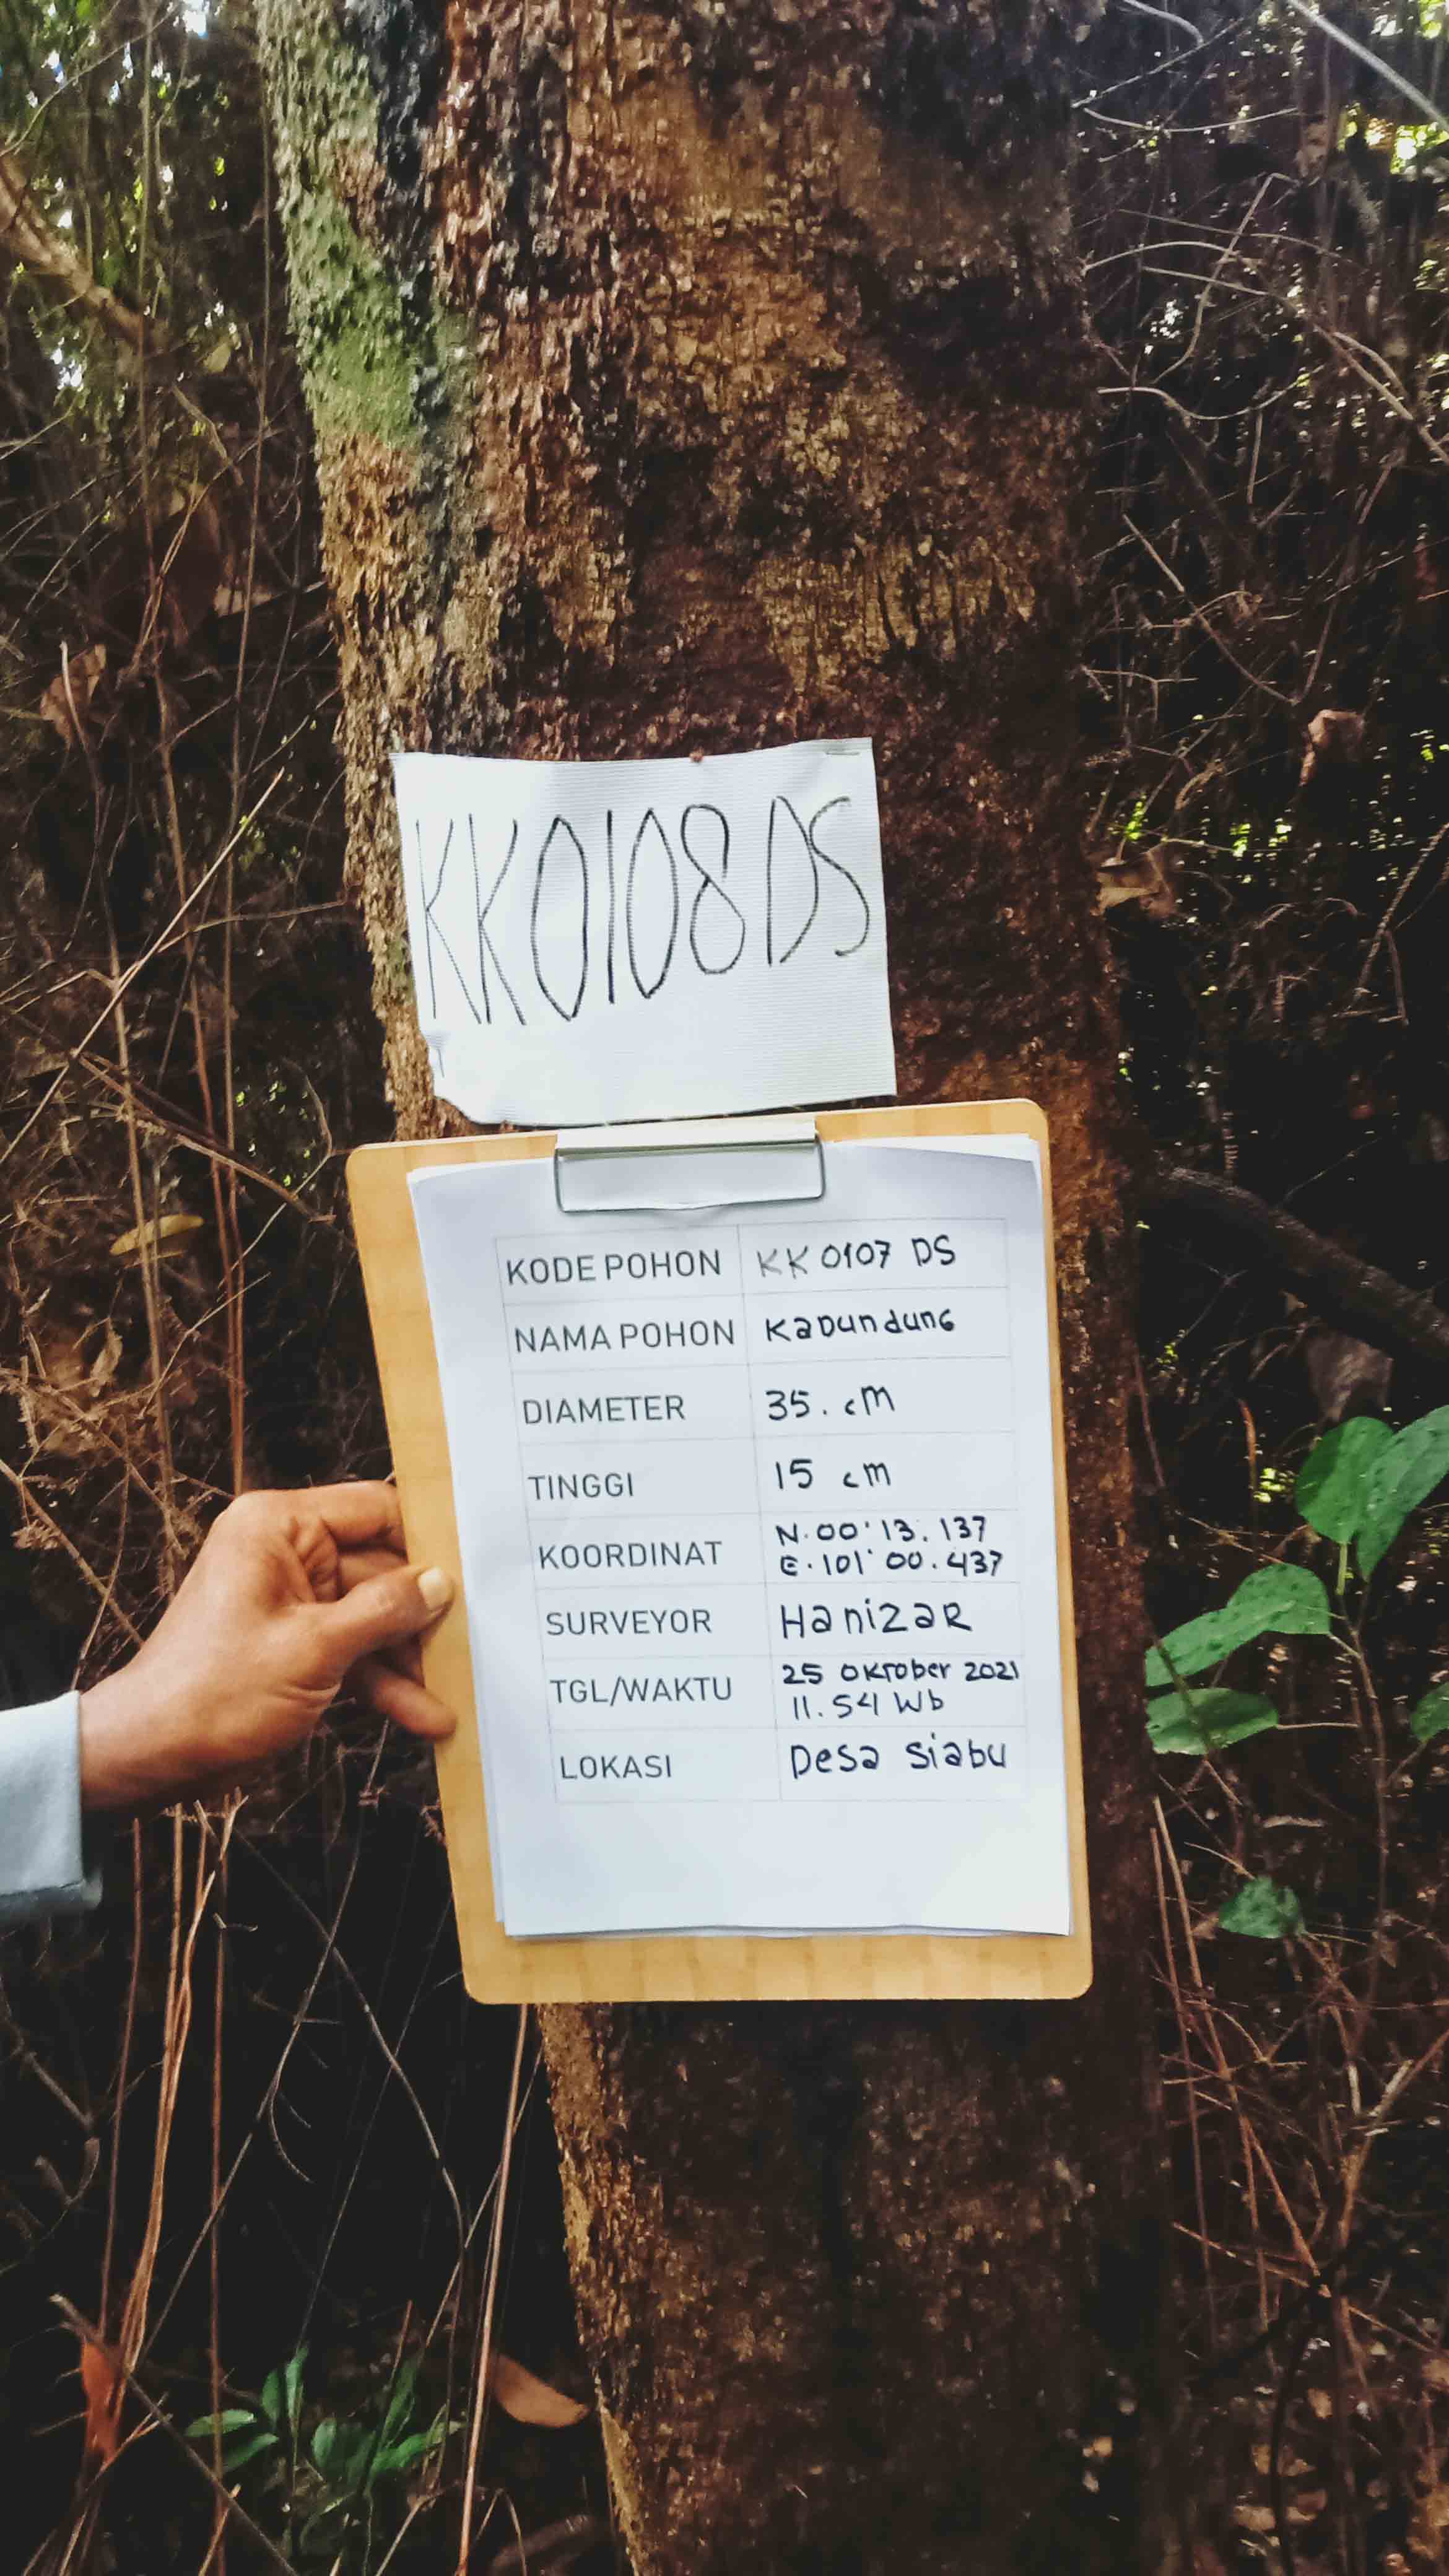 KK0108DS
KODE POHON KK 0107 DS
NAMA POHON Kadundung
DIAMETER 35. cm
TINGGI 15 cm
KOORDINAT N. 00' 13. 137
E. 101' 00. 437
SURVEYOR HanizaR
TGL/WAKTU 25 Oktober 2021
11. 54 Wb
LOKASI Desa Siabu